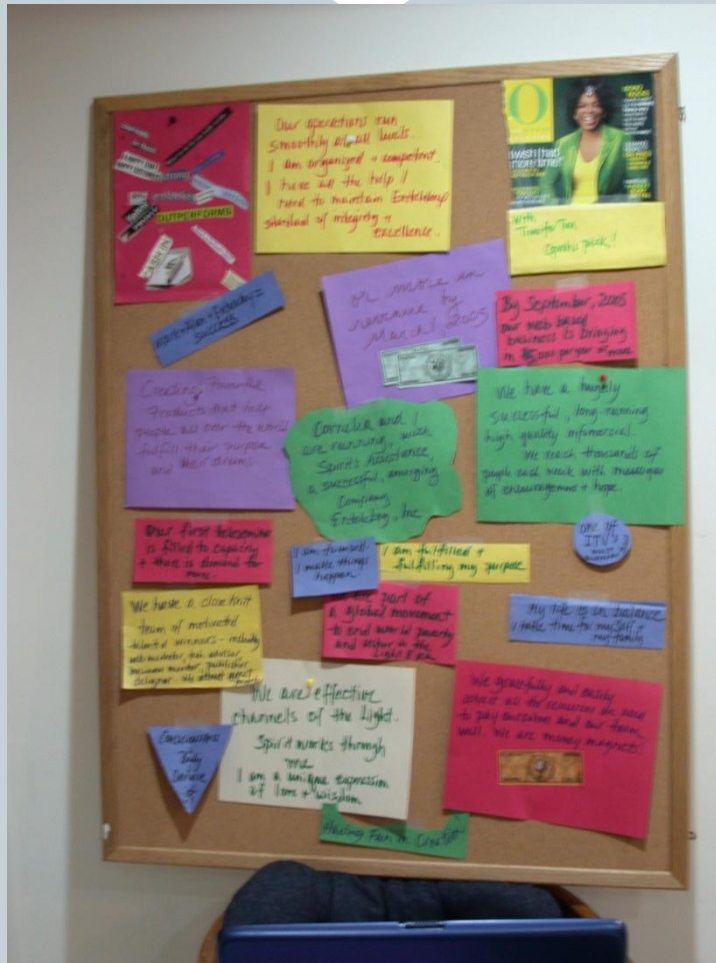 CASH IN
OUTPERFORMS
Our operations run
smoothly at all levels.
I am organized + competent.
I have all the help I
need to maintain
standard of integrity +
excellence.
O
I wish I had
more time!
With
Time for Ten
pick!!
SUCCESS
or more in
revenue by
March, 2005
By September, 2005
our web-based
business is bringing
in per year or more
Creating Powerful
Products that help
people all over the world
fulfill their purpose
and their dreams.
Cornelia and I
are running, with
Spirit's Assistance
a successful, emerging
Company
Inc
We have a hugely
successful, long-running
high quality infomercial.
We reach thousands of
people each week with messages
of encouragement + hope.
one of
ITV's
Our first teleseminar
is filled to capacity
+ there is demand for
more.
I am focused.
I make things
happen.
I am fulfilled +
fulfilling my purpose
We have a close knit
team of motivated
talented winners - including
web marketer, tech advisor,
business mentor, publisher
designer. We attract
part of
a global movement
to end world poverty
and usher in the
Light Era
My life is in balance
I take time for myself +
my family
We are effective
channels of the Light.
Spirit works through
me
I am a unique expression
of love + wisdom
We gracefully and easily
attract all the resources we need
to pay ourselves and our team
well. We are money magnets!
Consciousness
Daily
Service
of
Having Fun in